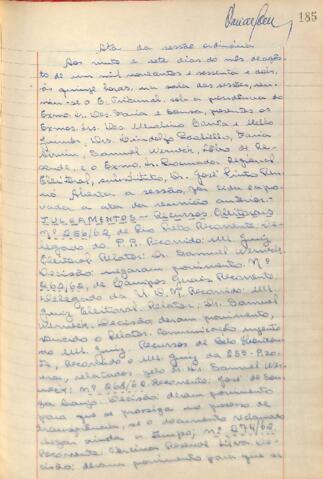 185
Ata da sessão ordinária
Aos vinte e sete dias do mês de agôs-
to de um mil novecentos e sessenta e dois,
às quinze horas, na sala das sessões, reu-
niu-se o E. Tribunal, sob a presidência do
Exmo. sr. Des. Faria e Sousa, presentes os
Exmos. srs. Des. e Mello
Junior, Drs. Lindolfo Paoliello, Faria
Samuel Werneck, Lôbo de Re-
zende, e o Exmo. sr. Procurador Regional
Eleitoral, substituto, Dr. José Pinto Ren-
nó. Aberta a sessão, foi lida e apro-
vada a ata da reunião anterior.
JULGAMENTOS — Recursos Eleitorais
Nº 256/62 de Rio Preto. Recorrente: De-
legado do P.R. Recorrido: MM. Juiz
Eleitoral. Relator: Dr. Samuel Werneck.
Decisão: negaram provimento. Nº
262/62, de Campos Gerais. Recorrente:
Delegado da U.D.N. Recorrido: MM.
Juiz Eleitoral. Relator: Dr. Samuel
Werneck. Decisão: deram provimento,
vencido o Relator. Comunicação urgente
ao MM. Juiz. Recursos de Belo Horizon-
te, Recorrido o MM. Juiz da 255ª Zo-
na, relatados pelo sr. Dr. Samuel Wer-
neck: nº 268/62. Recorrente: José de Sou-
za Decisão: deram provimento
para que se prossiga no processo de
transferência, se o documento reclamado
chegar ainda a tempo; nº 274/62.
Recorrente: Silva. De-
cisão: deram provimento para que se